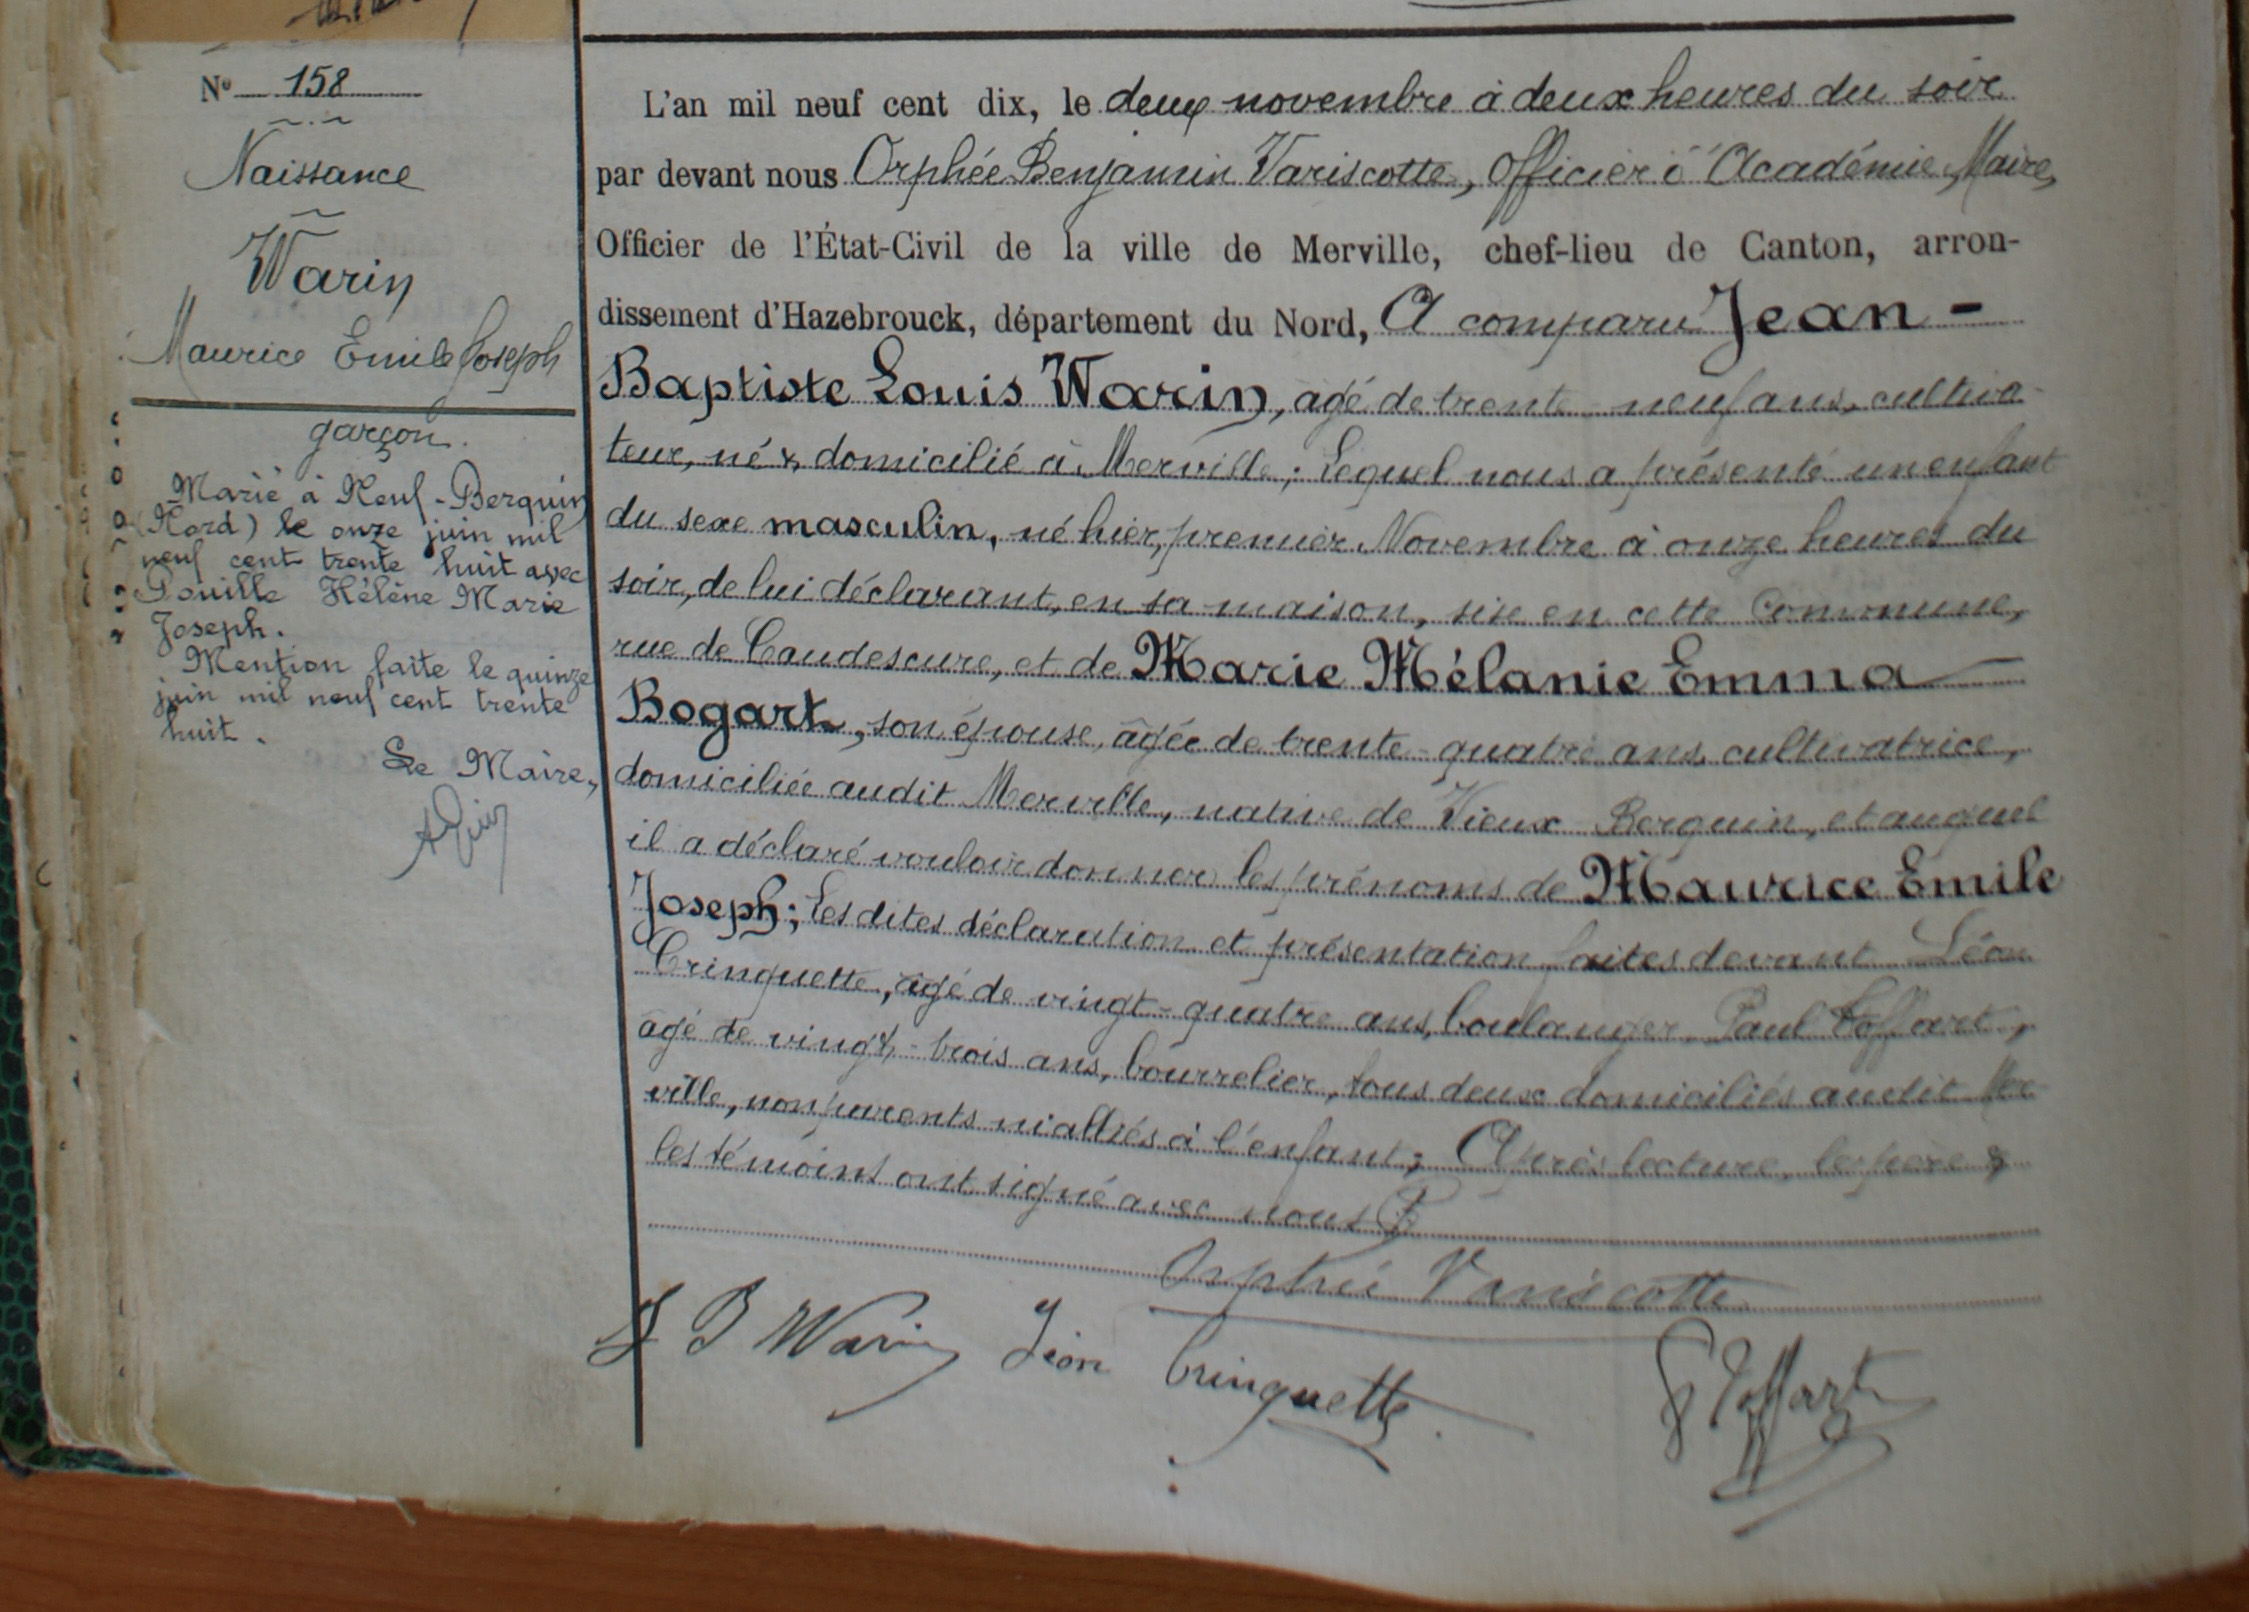 Nº 158
Naissance
Warin
Maurice Emile Joseph
garçon.
Marié à Neuf-Berquin
(Nord) le onze juin mil
neuf cent trente huit avec
Pouille Hélène Marie
Joseph.
Mention faite le quinze
juin mil neuf cent trente
huit.
Le Maire,
L'an mil neuf cent dix, le deux novembre à deux heures du soir
par devant nous Orphée Benjamin Variscotte, Officier d'Académie, Maire,
Officier de l'État-Civil de la ville de Merville, chef-lieu de Canton, arron-
dissement d'Hazebrouck, département du Nord, A comparu Jean-
Baptiste Louis Warin, âgé de trente-neuf ans, cultiva-
teur, né & domicilié à Merville; Lequel nous a présenté un enfant
du sexe masculin, né hier, premier Novembre à onze heures du
soir, de lui déclarant, en sa maison, sise en cette Commune,
rue de Caudescure, et de Marie Mélanie Emma
Bogart, son épouse, âgée de trente-quatre ans, cultivatrice,
domiciliée audit Merville, native de Vieux-Berquin, et auquel
il a déclaré vouloir donner les prénoms de Maurice Emile
Joseph; Les dites déclaration et présentation faites devant Léon
Crinquette, âgé de vingt-quatre ans, boulanger, Paul Toffart,
âgé de vingt-trois ans, bourrelier, tous deux domiciliés audit Mer-
ville, non parents ni alliés à l'enfant; Après lecture, le père &
les témoins ont signé avec nous
Orphée Variscotte
J B Warin Léon Crinquette
P Toffart